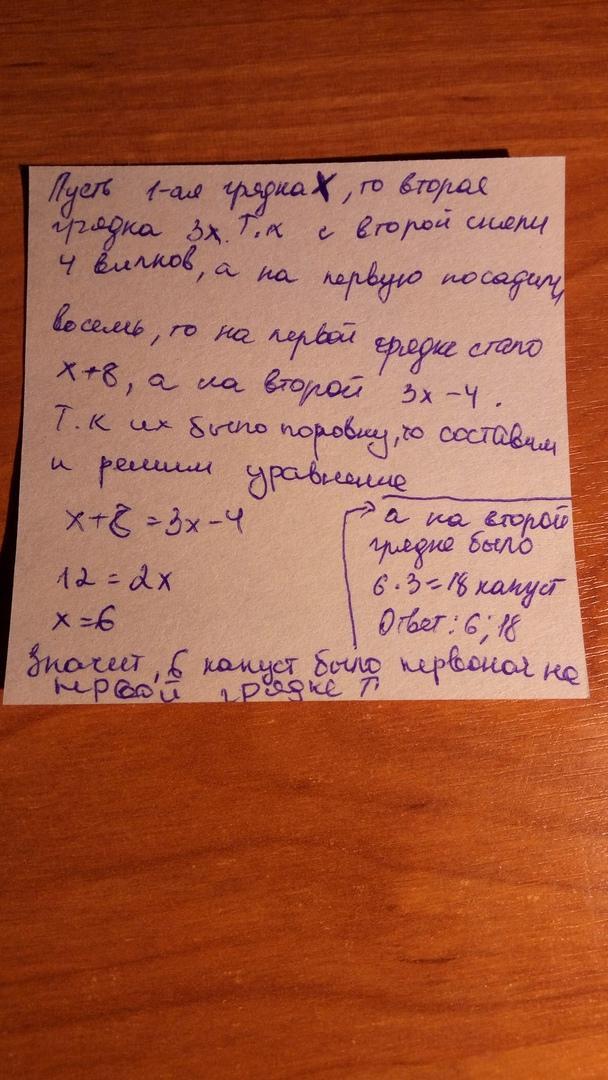 Пусть 1-ая грядка x, то вторая
грядка 3x. Т.к с второй сняли
4 вилков, а на первую посадили
восемь, то на первой грядке стало
x+8, а на второй 3x-4.
Т.к их было поровну, то составим
и решим уравнение
x+8=3x-4
12=2x
x=6
Значит, 6 капуст было первонач на
первой грядке
а на второй
грядке было
6·3=18 капуст
Ответ: 6; 18